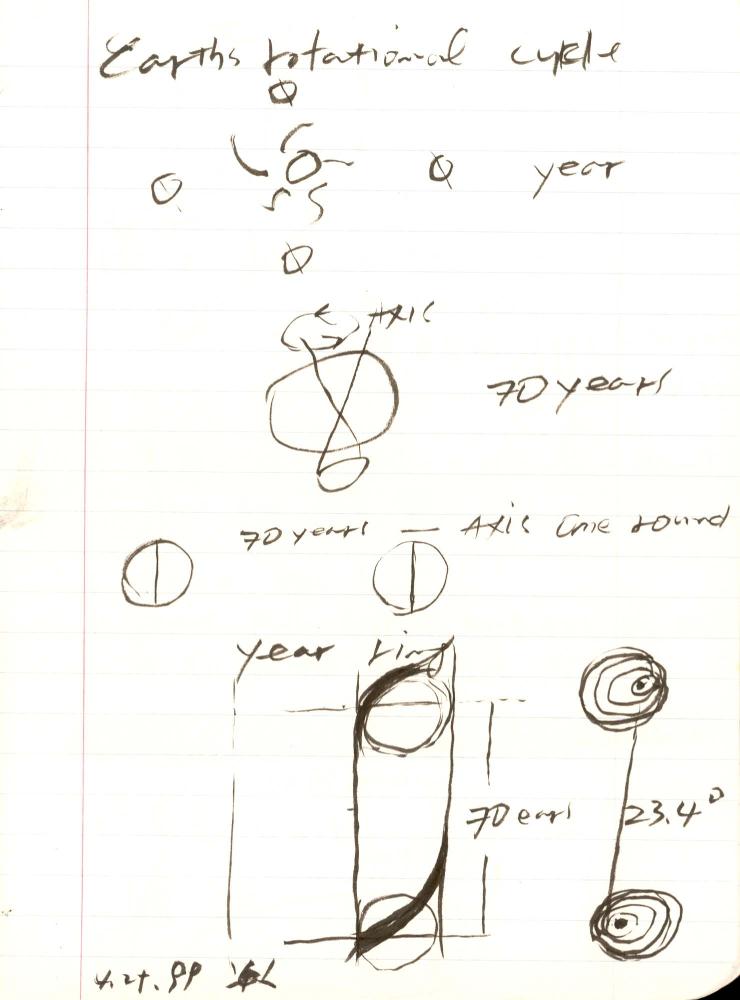 Earths rotational cycle
year
Axis
70 years
70 years — Axis One round
year ring
70 ears
23.4°
4.24.99